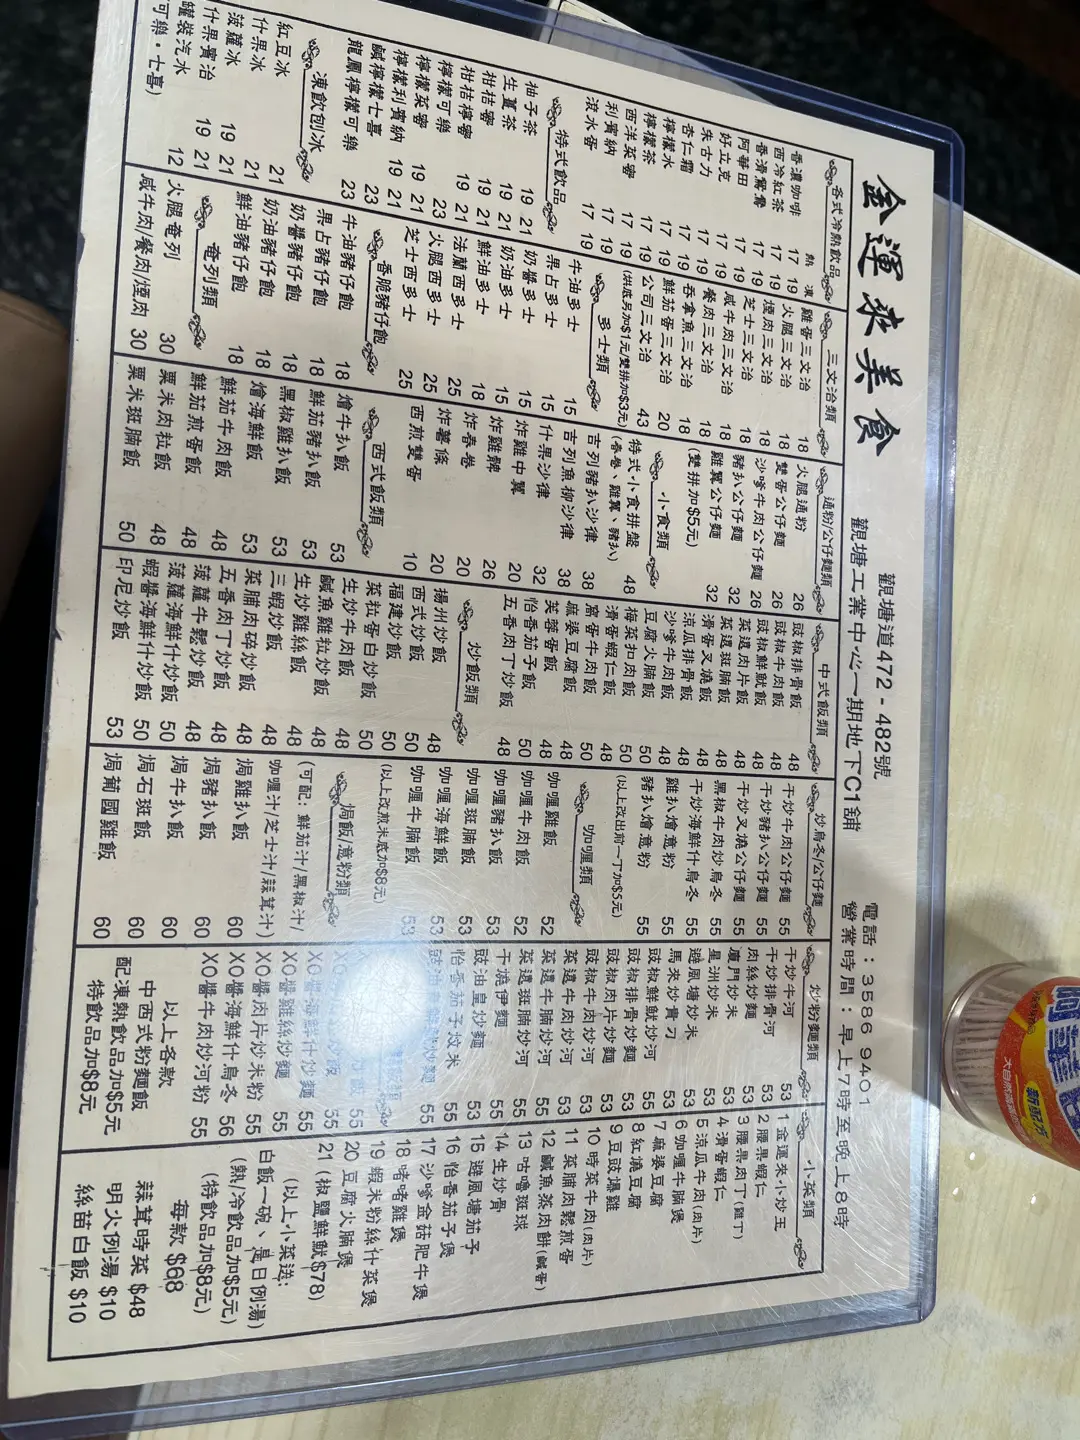 金運來美食
觀塘道472 - 482號
觀塘工業中心一期地下C1舖
電話：3586 9401
營業時間：早上7時至晚上8時
各式冷熱飲品
熱 凍
香濃咖啡 17 19
西冷紅茶 17 19
香滑鴛鴦 17 19
阿華田 17 19
好立克 17 19
朱古力 17 19
杏仁霜 17 19
檸檬水 17 19
檸檬茶 17 19
西洋菜蜜 17 19
利賓納 17 19
滾水蛋 17 19
特式飲品
柚子茶 19 21
生薑茶 19 21
柑桔蜜 19 21
柑桔檸蜜 19 21
檸檬可樂 23
檸檬菜蜜 19 21
檸檬利賓納 19 21
鹹檸檬七喜 23
龍鳳檸檬可樂 23
凍飲刨冰
紅豆冰 21
什果冰 21
菠蘿冰 19 21
什果賓治 19 21
罐裝汽水 12
可樂・七喜)
三文治類
雞蛋三文治 18
火腿三文治 18
煙肉三文治 18
芝士三文治 18
咸牛肉三文治 18
餐肉三文治 18
吞拿魚三文治 18
鮮茄蛋三文治 20
公司三文治 43
(烘底另加$1元/雙拼加$3元)
多士類
牛油多士 15
果占多士 15
奶醬多士 15
奶油多士 15
鮮油多士 18
法蘭西多士 25
火腿西多士 25
芝士西多士 25
香脆豬仔飽
牛油豬仔飽 18
果占豬仔飽 18
奶醬豬仔飽 18
奶油豬仔飽 18
鮮油豬仔飽 18
奄列類
火腿奄列 30
咸牛肉/餐肉/煙肉 30
通粉/公仔麵類
火腿通粉 26
雙蛋公仔麵 26
沙嗲牛肉公仔麵 26
豬扒公仔麵 32
雞翼公仔麵 32
(雙拼加$5元)
小食類
特式小食拼盤 48
(春卷、雞翼、豬扒)
吉列豬扒沙律 38
吉列魚柳沙律 38
什果沙律 32
炸雞中翼 20
炸雞髀 26
炸春卷 20
炸薯條 20
西煎雙蛋 10
西式飯類
燴牛扒飯 53
鮮茄豬扒飯 53
黑椒雞扒飯 53
燴海鮮飯 53
鮮茄牛肉飯 48
鮮茄煎蛋飯 48
粟米肉粒飯 48
粟米斑腩飯 50
中式飯類
豉椒排骨飯 48
豉椒牛肉飯 48
豉椒鮮魷飯 48
菜遠肉片飯 48
菜遠斑腩飯 50
滑蛋叉燒飯 48
涼瓜排骨飯 48
沙嗲牛肉飯 48
豆腐火腩飯 50
梅菜扣肉飯 50
滑蛋蝦仁飯 48
窩蛋牛肉飯 50
麻婆豆腐飯 48
芙蓉蛋飯 48
怡香茄子飯 50
五香肉丁炒飯 48
炒飯類
揚州炒飯 48
西式炒飯 50
福建炒飯 50
菜粒蛋白炒飯 50
生炒牛肉飯 48
鹹魚雞粒炒飯 50
生炒雞絲飯 48
三蝦炒飯 48
菜脯肉碎炒飯 48
五香肉丁炒飯 48
菠蘿牛鬆炒飯 48
菠蘿海鮮什炒飯 50
蝦醬海鮮什炒飯 50
印尼炒飯 53
炒烏冬/公仔麵
干炒牛肉公仔麵 55
干炒豬扒公仔麵 55
干炒叉燒公仔麵 55
黑椒牛肉炒烏冬 55
干炒海鮮什烏冬 55
雞扒燴意粉 55
豬扒燴意粉 55
(以上改出前一丁加$5元)
咖喱類
咖喱雞飯 52
咖喱牛肉飯 52
咖喱豬扒飯 53
咖喱斑腩飯 53
咖喱海鮮飯 53
咖喱牛腩飯 53
(以上改煎米底加$8元)
焗飯/意粉類
(可配：鮮茄汁/黑椒汁/
咖喱汁/芝士汁/蒜茸汁)
焗雞扒飯 60
焗豬扒飯 60
焗牛扒飯 60
焗石斑飯 60
焗葡國雞飯 60
炒粉麵類
干炒牛河 53
干炒排骨河 53
肉絲炒麵 53
廈門炒米 53
星洲炒米 53
避風塘炒米 53
馬來炒貴刁 53
豉椒鮮魷炒河 55
豉椒排骨炒麵 53
豉椒肉片炒麵 53
豉椒牛肉炒河 53
菜遠牛肉炒河 53
菜遠牛腩炒河 55
菜遠斑腩炒河 55
干燒伊麵 55
豉油皇炒麵 53
怡香茄子炆米 55
55
XO醬海鮮什炒麵 55
XO醬雞絲炒麵 55
XO醬肉片炒米粉 55
XO醬海鮮什烏冬 56
XO醬牛肉炒河粉 55
以上各款
中西式粉麵飯
配凍熱飲品加$5元
特飲品加$8元
小菜類
1 金運來小炒王
2 腰果蝦仁
3 腰果肉丁(雞丁)
4 滑蛋蝦仁
5 涼瓜牛肉(肉片)
6 咖喱牛腩煲
7 麻婆豆腐
8 紅燒豆腐
9 豆豉爆雞
10 時菜牛肉(肉片)
11 菜脯肉鬆煎蛋
12 鹹魚蒸肉餅(鹹蛋)
13 咕嚕斑球
14 生炒骨
15 避風塘茄子
16 怡香茄子煲
17 沙嗲金菇肥牛煲
18 啫啫雞煲
19 蝦米粉絲什菜煲
20 豆腐火腩煲
21 (椒鹽鮮魷$78)
(以上小菜送:
白飯一碗、是日例湯)
(熱/冷飲品加$5元)
(特飲品加$8元)
每款 $68
蒜茸時菜 $48
明火例湯 $10
絲苗白飯 $10
新配方